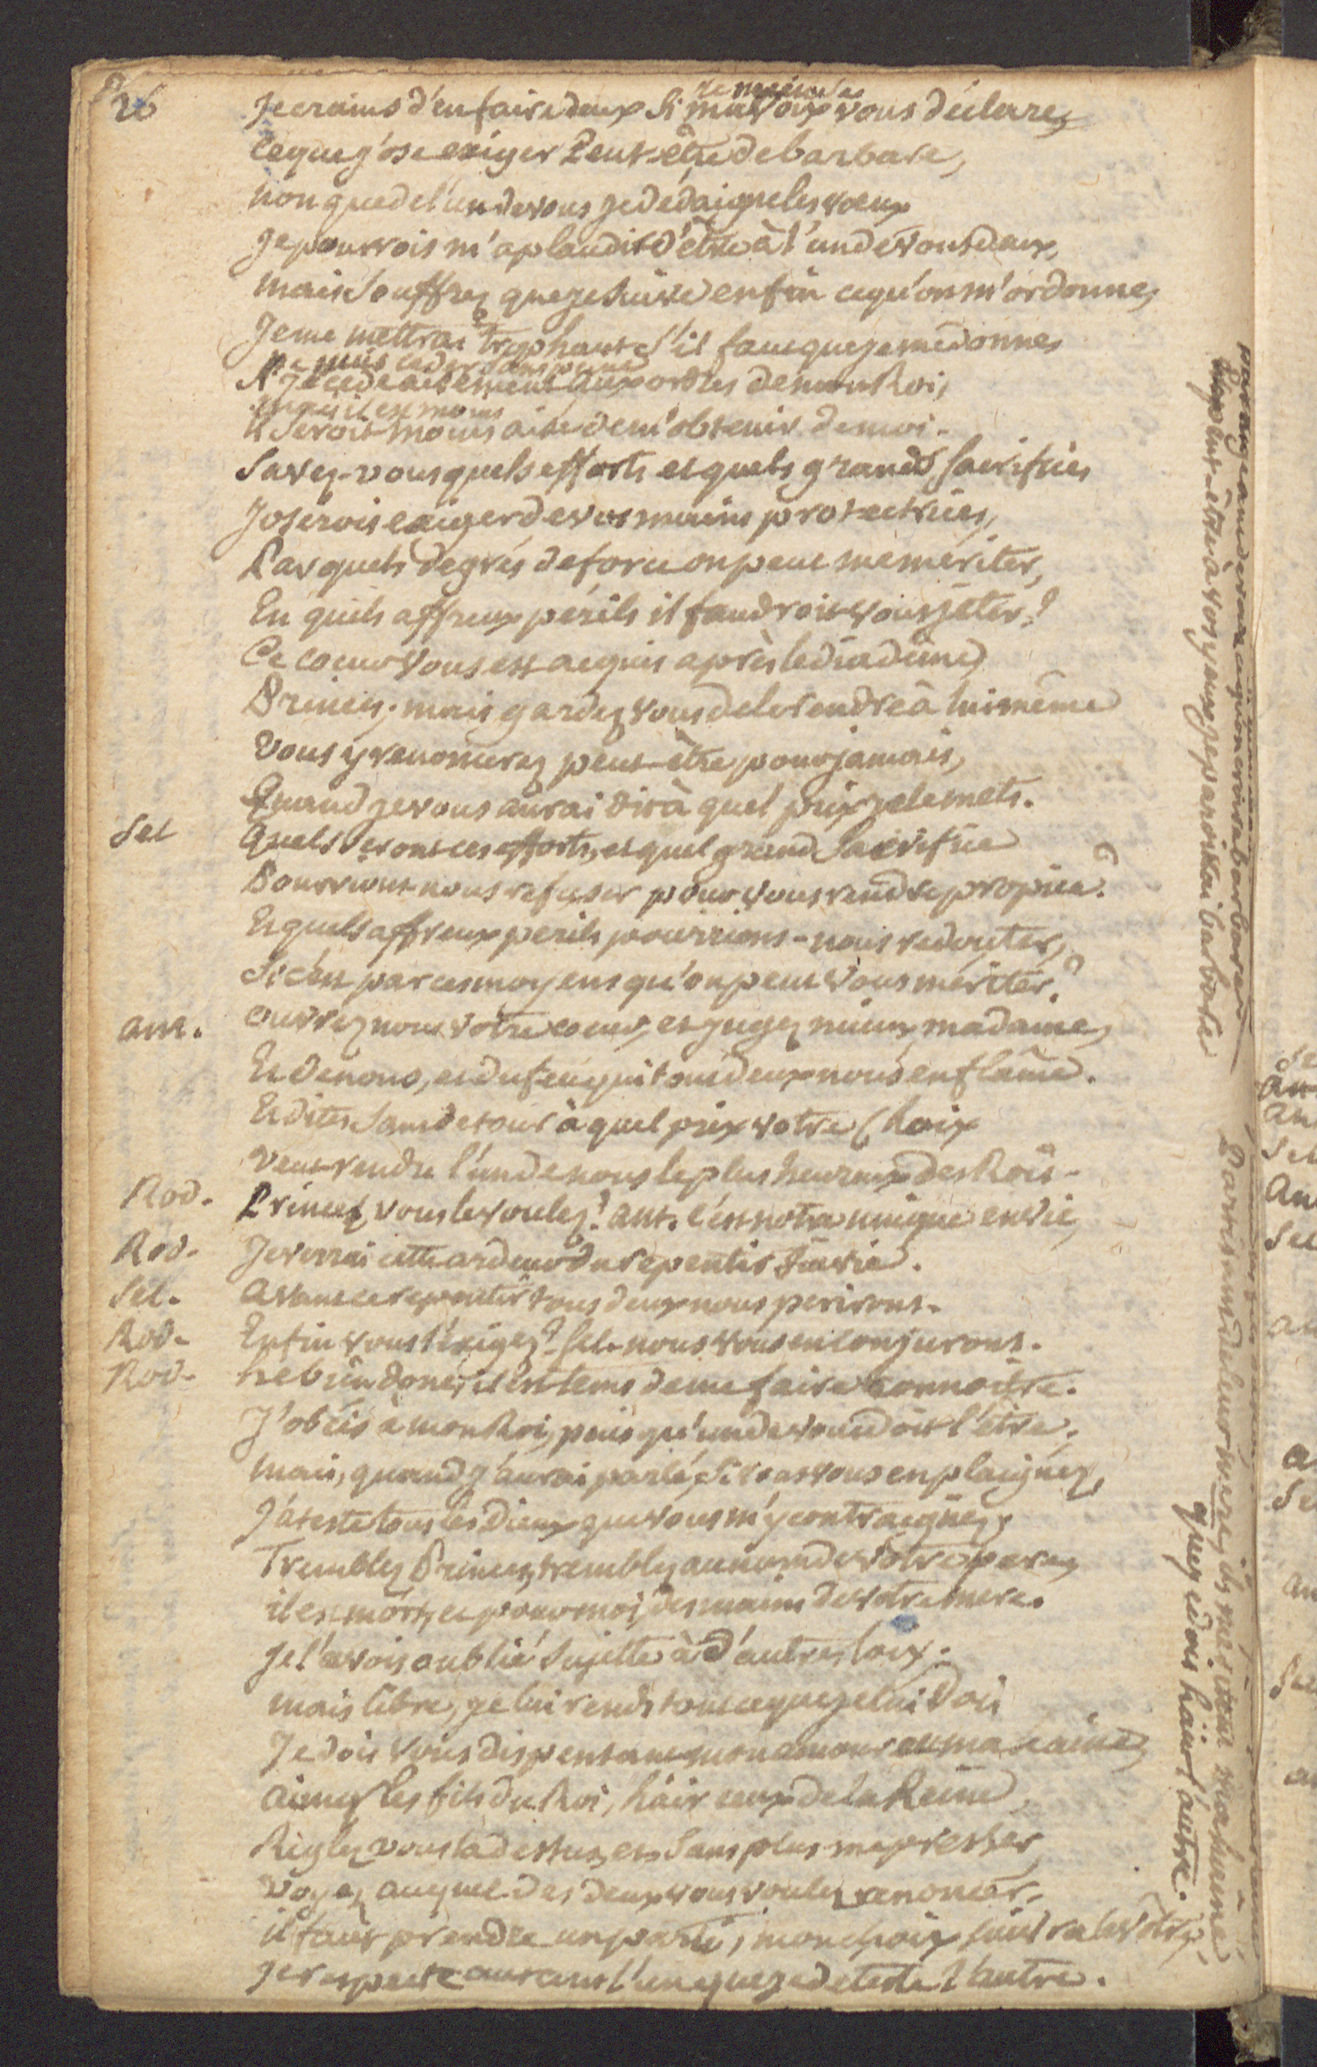 26
Je crains d'en faire deux si ma voix vous déclare,
Ce que j'ose exiger Peut-être de barbare,
non que de l'un de vous je dédaigne les vœux
Je pourrois m'aplaudir d'être à l'un de vous deux,
mais souffrez que je suive enfin ce qu'on m'ordonne,
Je me mettrai trop haut s'il faut que je me donne,
puis ceder sans peine
Je cede aisément aux ordres de mon Roi,
mais il est moins
il seroit moins aisé de m'obtenir de moi.
Savez-vous quels efforts et quels grands sacrifices
J'oserois exiger de vos mains protectrices,
Par quels degrés de force on peut me meriter,
En quels affreux périls il faudroit vous jeter?
Ce coeur vous est acquis après le diadême,
Princes; mais gardez vous de le rendre à lui même
Vous y renoncerez peut-être pour jamais,
Quand je vous aurai dit à quel prix je le mets.
Sel Quels seront ces efforts, et quel grand sacrifice
Pourriont-nous refuser pour vous rendre propice?
Et quels affreux périls pourrions-nous redouter,
Si c'est par ces moyens qu'on peut vous meriter?
ant. ouvrez nous votre coeur, et jugez mieux, madame,
Et de nous, et du feu qui tous deux nous enflâme.
Et dites sans detour à quel prix votre Choix
Veut rendre l'un de nous le plus heureux des Rois.
Rod. Princes, vous le voulez? ant. c'est notre unique envie,
Rod. Je verrai cette ardeur du repentir suivie.
Sel. avant ce repentir tous deux nous perirons.
Rod. Enfin vous l'éxigez? Sel. nous vous en conjurons.
Rod. he bien donc, il est tems de me faire connoitre.
J'obéis à mon Roi, puis qu'un de vous doit l'être,
mais, quand j'aurai parlé, si vous vous en plaignez,
J'ateste tous les Dieux que vous m'y contraignez.
Tremblez Princes, tremblez au nom de votre pere,
il est mort, et pour moi, des mains de votre mere.
Je l'avois oublié sujette à d'autres loix.
mais libre, je lui rends tout ce que je lui dois
Je dois vous dispensant mon amour et ma haine,
aimer les fils du Roi, haïr ceux de la Reine,
Réglez vous la dessus, et sans plus me presser,
Voyez auquel des deux vous voulez renoncer.
il faut prendre un parti, mon choix suivra le vôtre,
Je respecte autant l'un que je deteste l'autre.
peut-être à vos yeux je paroitrai barbare
ils meritent ma haine,
que je dois haïr l'autre.